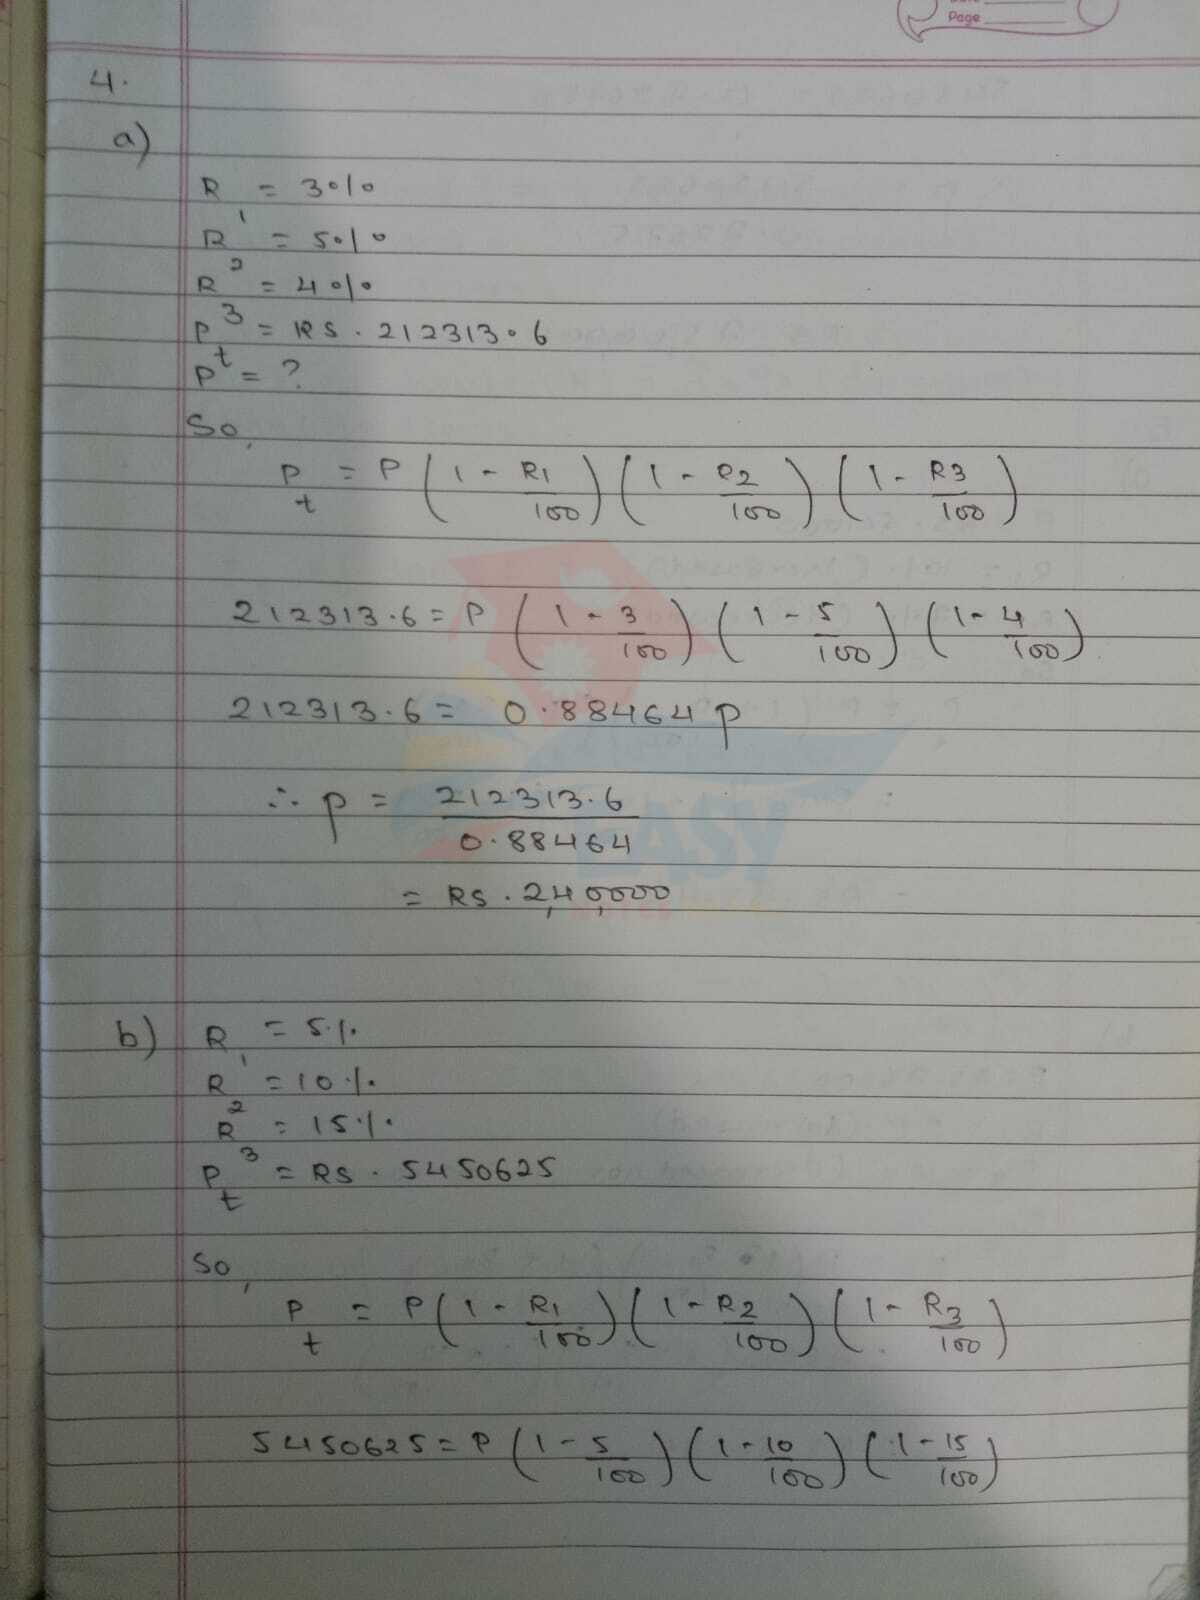 Page
4.
a)
R₁ = 3%
R₂ = 5%
R₃ = 4%
Pt = RS. 212313.6
P = ?
So,
Pt = P (1 - R1/100) (1 - R2/100) (1 - R3/100)
212313.6 = P (1 - 3/100) (1 - 5/100) (1 - 4/100)
212313.6 = 0.88464 p
∴ p = 212313.6/0.88464
= RS. 2,40,000
EASY
NOTES
b) R₁ = 5%
R₂ = 10%
R₃ = 15%
Pt = RS. 5450625
So,
Pt = P (1 - R1/100) (1 - R2/100) (1 - R3/100)
5450625 = P (1 - 5/100) (1 - 10/100) (1 - 15/100)